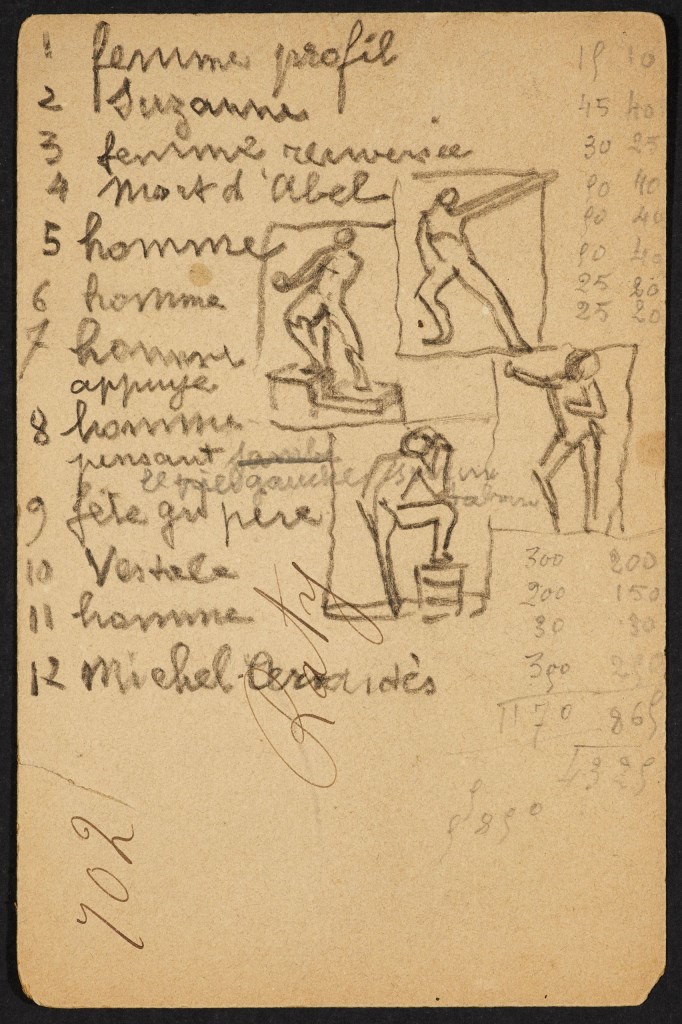 1 femme profil 15 10
2 Suzanne 45 40
3 femme renversée 30 25
4 Mort d'Abel 50 40
5 homme 50 40
50 40
6 homme 25 20
25 20
7 homme
appuyé
8 homme
pensant jambe
le pied gauche sur un
tabouret
9 fête gd père
10 Vestale 300 200
11 homme 200 150
30 30
12 Michel 300
1170 865
4325
5850
Raty
702